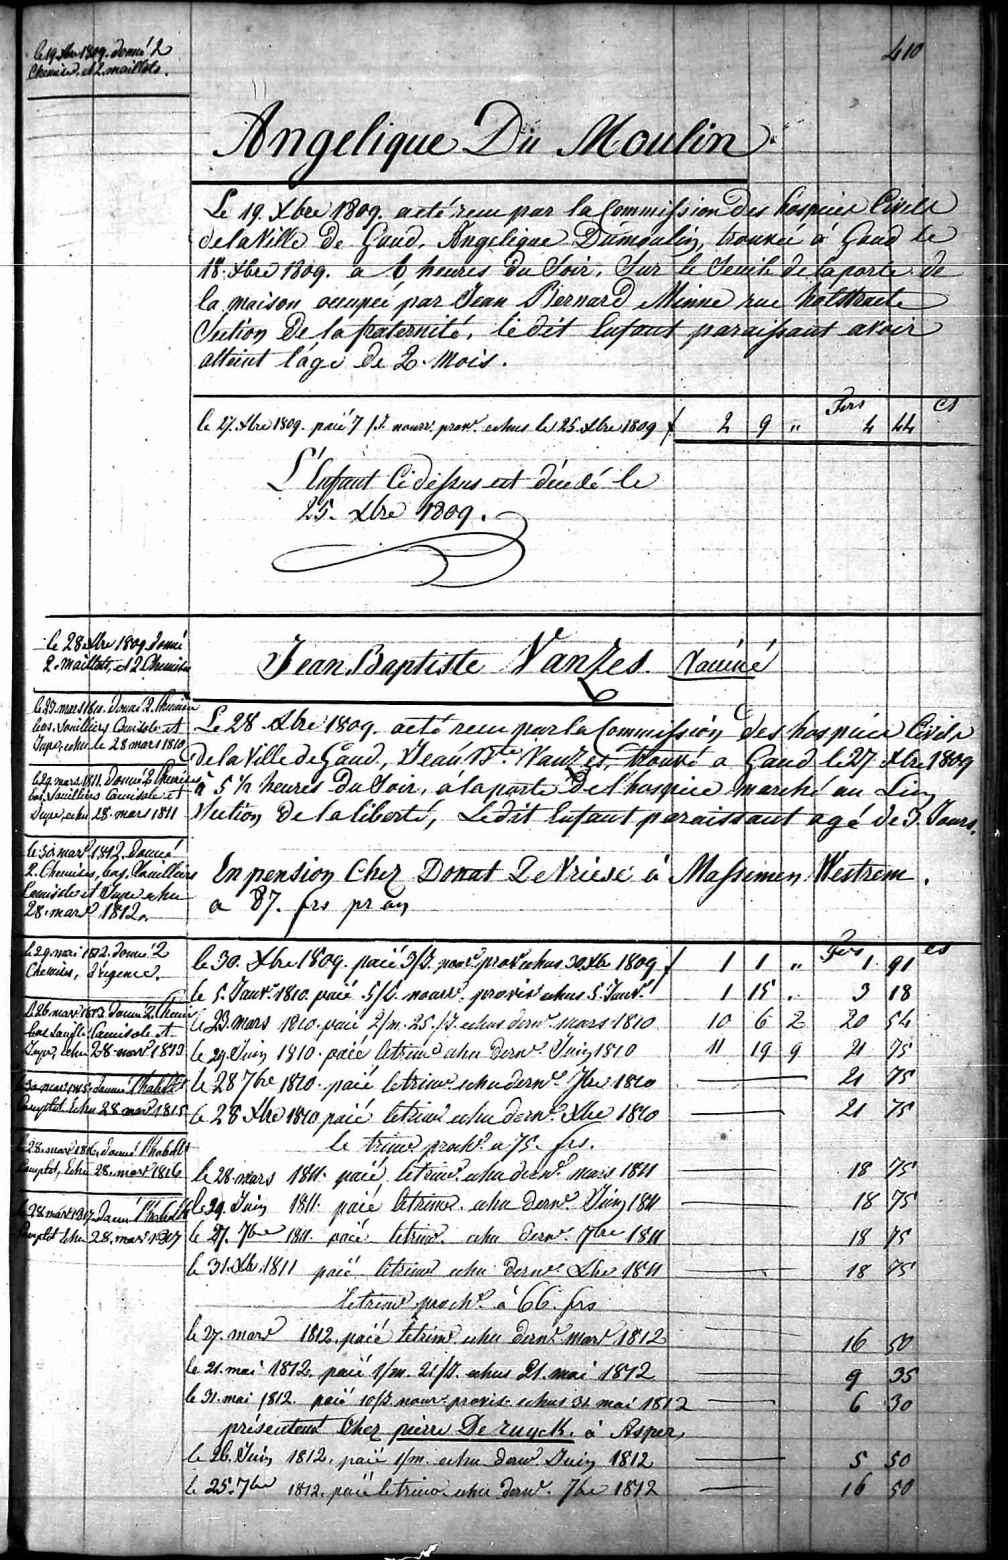 410
le 19 Xbre 1809. donné 2
Chemises et 2 maillots.
Angelique Du Moulin
Le 19. Xbre 1809. a eté recu par la Commission des hospices Civils
de la Ville de Gand, Angelique Dumoulin, trouvée à Gand le
18. Xbre 1809. a 6 heures du Soir, Sur le Seuil de la porte de
la maison occupeé par Jean Bernard Minne rue holstraete
Section De la fraternité, le dit Enfant paraissant avoir
atteint l'age de 2. mois.
Frs cs
le 27. Xbre 1809. paié 7/J. nourr. prov. echus le 25. Xbre 1809 f 2 9 " 4 44
L'Enfant Ci dessus est décédé le
25. Xbre 1809.
le 28 Xbre 1809 donné
2. maillots, et 2 Chemises
Jean Baptiste Vanzes. Vaciné
le 29. mars 1810. donné 2. Chemises
bas, Souilliers Camisole et
Jupe, echu le 28 mars 1810
le 29. mars 1811. Donné 2 Chemises
bas, Souilliers Camisole et
Jupe, echu 28. mars 1811
le 30 mars 1812. Donné
2. Chemises, bas, Souilliers
Camisole et Jupe echu
28. mars 1812.
Le 28 Xbre 1809. a eté recu par la Commission des hospices Civils
de la Ville de Gand, Jean Bte Vanzes, trouvé a Gand le 27 Xbre 1809
à 5 1/2 heures du Soir, à la porte De l'hospice marché au Lin
Section De la liberté, Le dit Enfant paraissant agé de 3. Jours.
En pension Chez Donat De Vriese à Massemen Westrem.
a 87. frs pr an
le 29. mai 1812. donné 2
Chemises, d'urgence.
le 26. mars 1813 donné 2. Chemises
Camisole et
Jupe, echu 28. mars 1813
donné l'habillt
Complet Echu 28 mars 1815
le 28. mars 1816. donné l'habillt
Complet, Echu 28. mars 1816
le 28 mars 1817. donné l'habillt
Complet Echu 28. mars 1817
Frs cs
le 30. Xbre 1809. paié 3/J. nour. prov. echus 30 Xbre 1809 f 1 1 " 1 91
le 5. Janvr 1810. paié 5/J. nourr. provis. echus 5. Janvr 1 15 . 3 18
le 23 mars 1810. paié 2/m. 25/J. echus dernr mars 1810 10 6 2 20 54
le 29. Juin 1810. paié le trimre echu dernr Juin 1810 11 19 9 21 75
le 28 7bre 1810. paié le trimre echu dernr 7bre 1810 21 75
le 28 Xbre 1810 paié le trimre echu dernr Xbre 1810 21 75
le trimre prochn a 75. frs.
le 28. mars 1811. paié le trimre echu dernr mars 1811 18 75
le 29. Juin 1811. paié le trimre echu dernr Juin 1811 18 75
le 27. 7bre 1811. paié le trimre echu dernr 7bre 1811 18 75
le 31. Xbre 1811 paié le trimre echu dernr Xbre 1811 18 75
le trimre prochn à 66. frs
le 27. mars 1812. paié le trimre echu dernr mars 1812 16 50
le 21. mai 1812. paié 1/m. 21/J. echus 21. mai 1812 9 35
le 31. mai 1812. paié 10/J. nourr. provis. echus 31. mai 1812 6 30
présentemt Chez pierre De ruyck. à Asper,
le 26. Juin 1812. paié 1/m. echu dernr Juin 1812 5 50
le 25. 7bre 1812. paié le trimre echu dernr. 7bre 1812 16 50